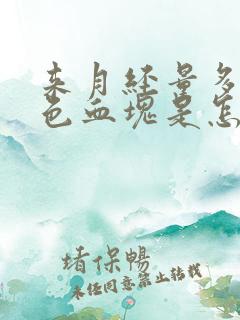 来月经量多
色血块是怎
堵保畅
未经同意禁止转载